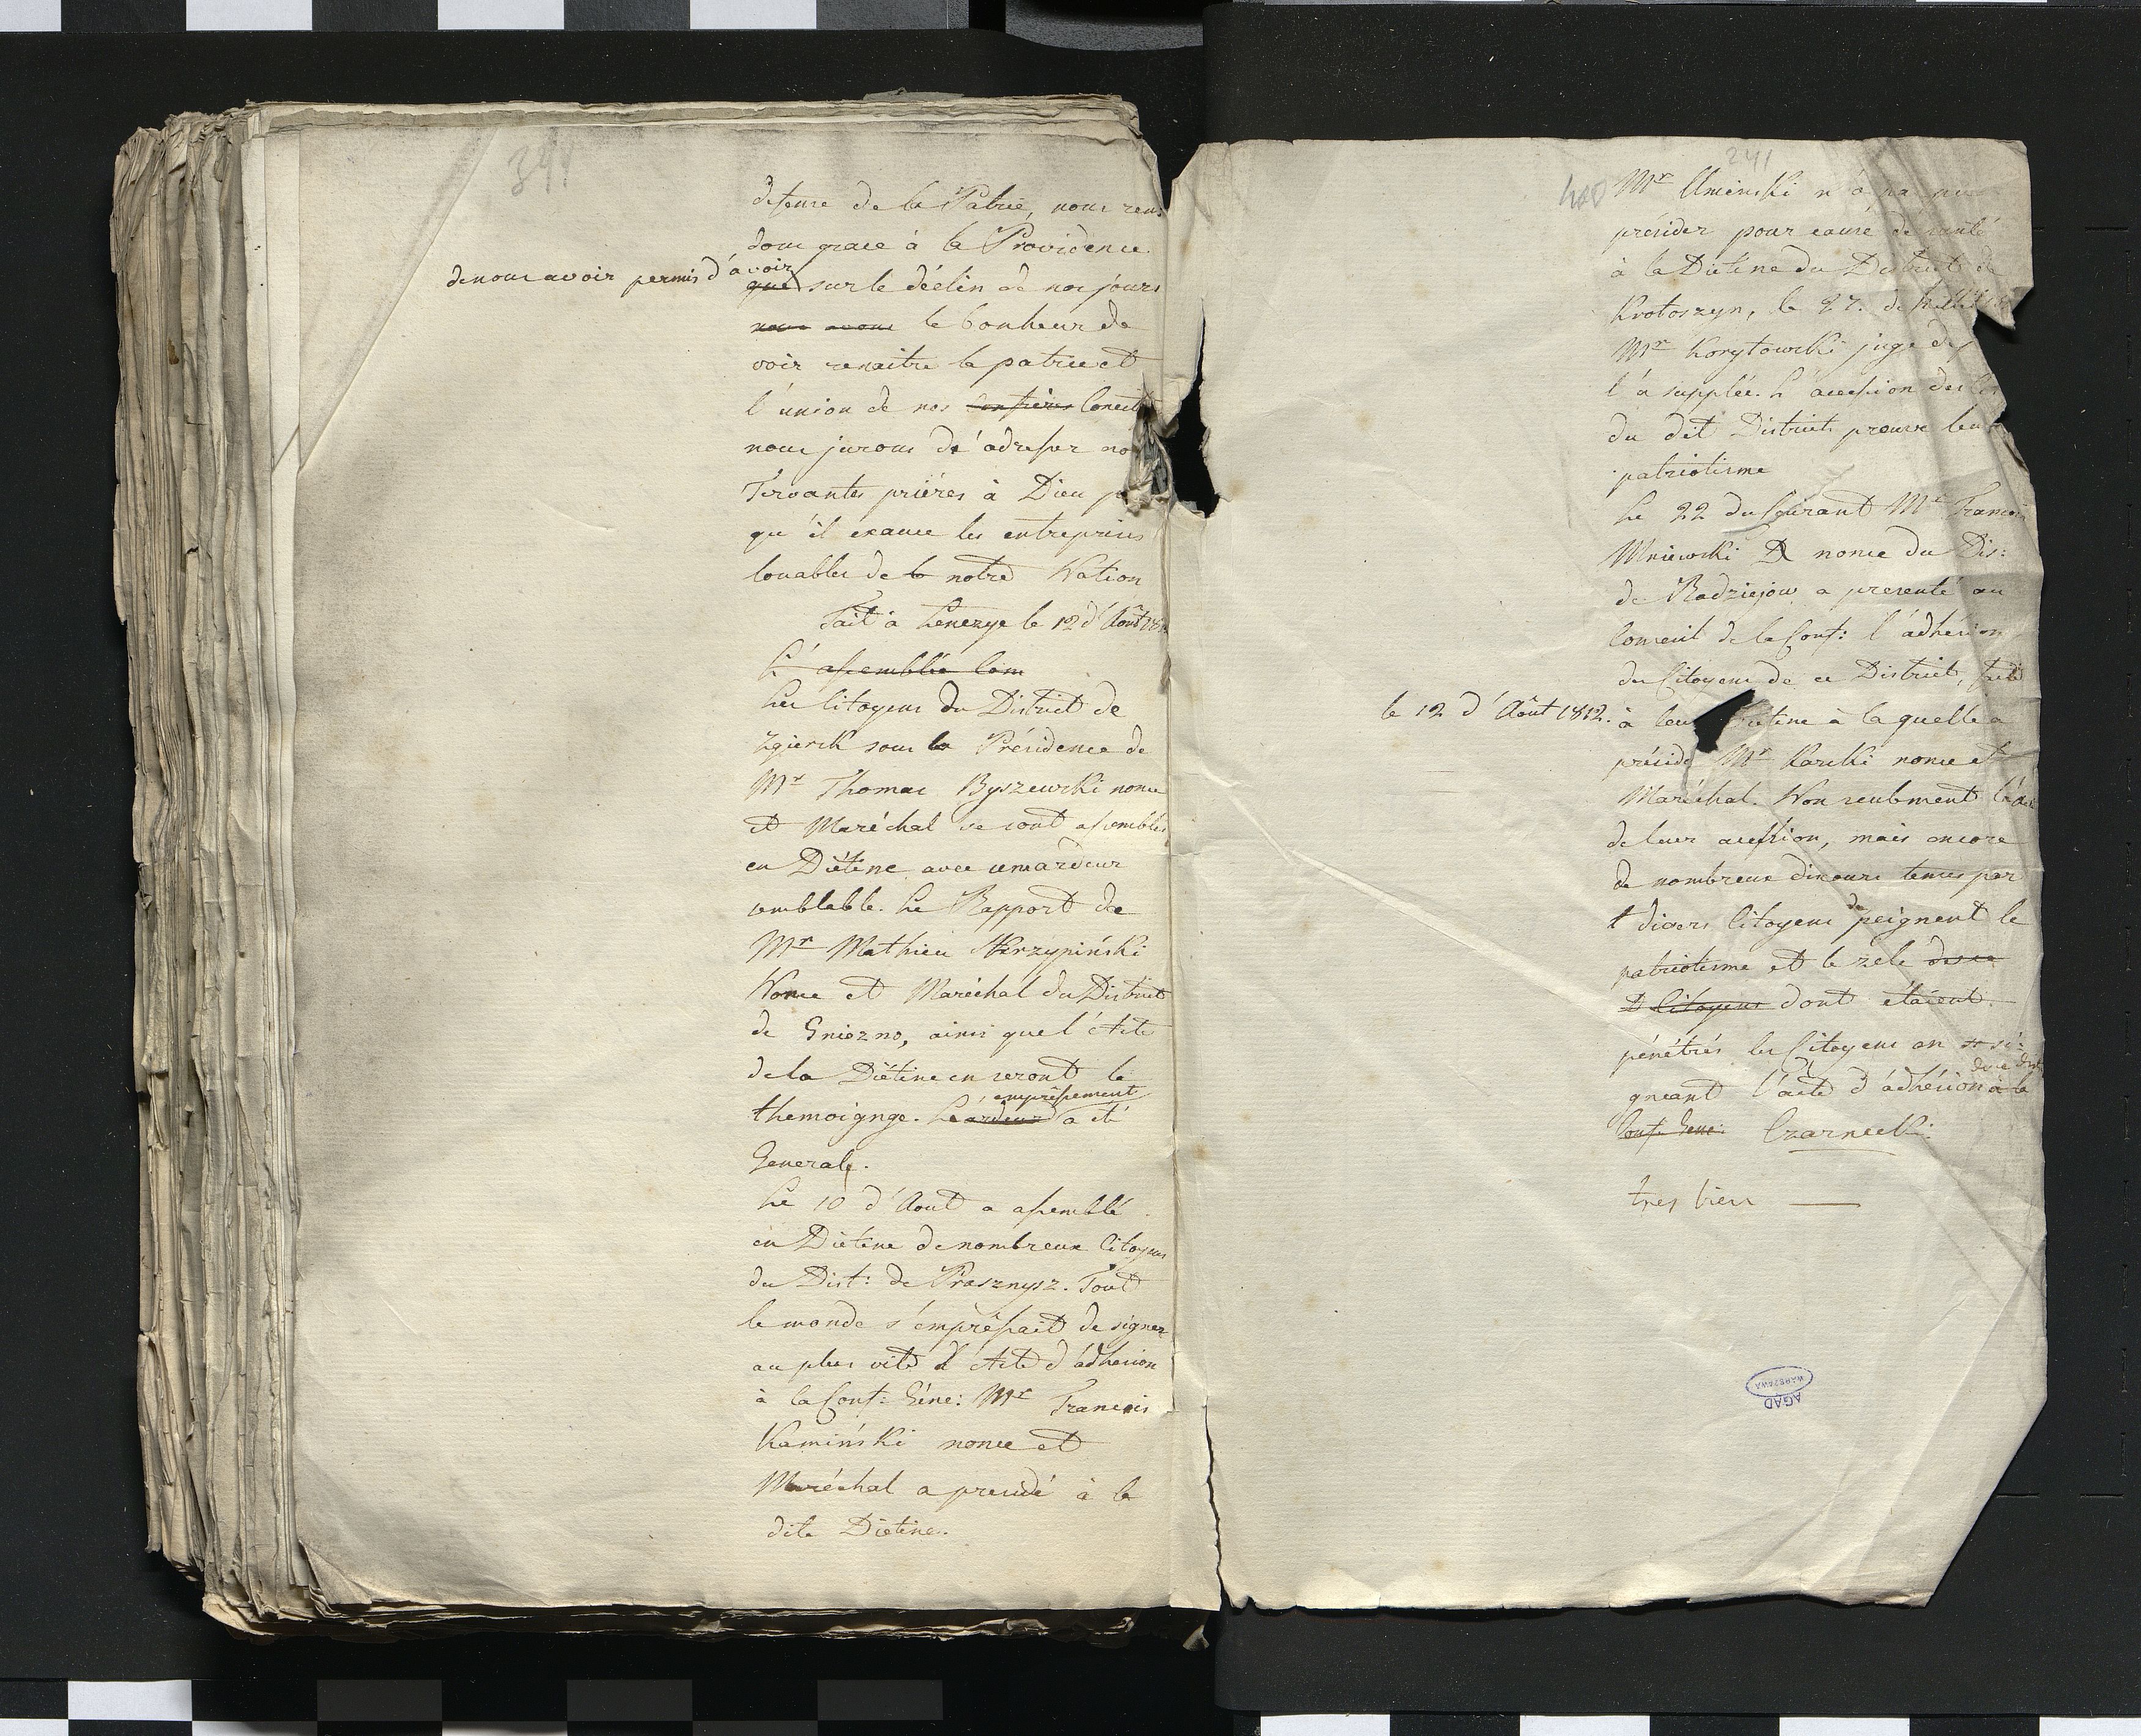 399
defense de la Patrie, nous ren:
dons grace à la Providence
de nous avoir permis d'avoir
que sur le déclin de nos jours
nous avons le bonheur de
voir renaitre la patrie et
l'union de nos Confreres Concit
nous jurons de d'adresser no
fervantes priéres à Dieu
qu'il exauce les entreprises
louables de la notre Nation
Fait à Lenczyc le 12 d'Août
L'assemblée Com
Les Citoyens du District de
Zgiersk sous la Présidence de
Mr Thomas Byszewski nonce
et Maréchal se sont assemblés
en Diétine avec un ardeur
semblable. Le Rapport de
Mr Mathieu Skrzypiński
Nonce et Maréchal du District
de Gniezno, ainsi que l'Acte
de la Diétine en seront le
empressement
themoignge. L'ardeur a été
Generale.
Le 10 d'Aout a assemblé
en Diétine de nombreux Citoyens
du Dist: de Prasznysz. Tout
le monde s'empressait de signer
au plus vite l'Acte d'adhesion
à la Conf: Géne: Mr Francois
Kamiński nonce et
Maréchal a presidé à la
dite Diétine.
241
400
Mr Umiński n'a pa
présider pour cause de santé
à la Diétine du District de
Krotoszyn, le 27. de Juillet
Mr Korytowski juge de
l'a supplée. L'accession des
du dit District prouve leur
patriotisme
Le 22 du Courant Mr Francois
Mniewski nonce du Dis:
de Radziejow a presenté au
Conseil de la Conf: l'adhésion
des Citoyens de ce District,
le 12 d'Août 1812.
à leur Dietine à laquelle a
présidé Mr Karski nonce et
Maréchal. Non seulement l'acte
de leur accession, mais encore
de nombreux discours tenus par
divers Citoyens depeignent le
patriotisme et le zéle des
Citoyens dont étaient
pénétrés les Citoyens en si:
gneant l'acte d'adhésion à la
Conf: Gene: Czarnecki
tres bien
AGAD
WARSZAWA